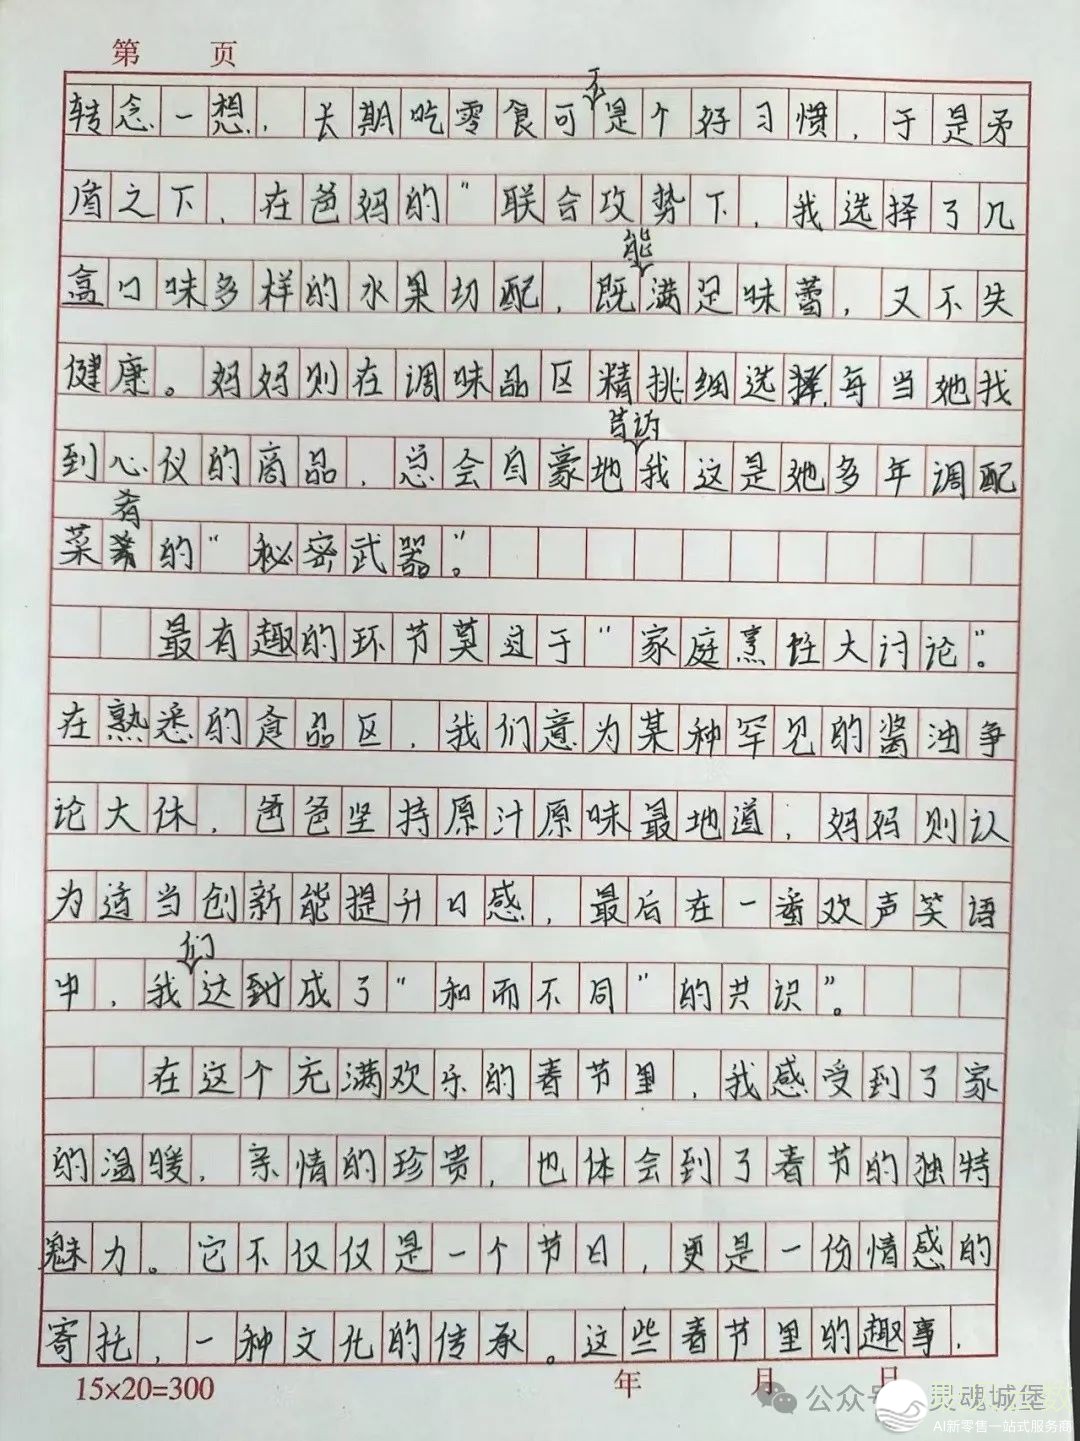 第 页
转念一想，长期吃零食可不是个好习惯，于是矛
盾之下，在爸妈的“联合攻势下，我选择了几
盒口味多样的水果切配，既能满足味蕾，又不失
健康。妈妈则在调味品区精挑细选择，每当她找
到心仪的商品，总会自豪地告诉我这是她多年调配
菜肴的“秘密武器”。
最有趣的环节莫过于“家庭烹饪大讨论”。
在熟悉的食品区，我们意为某种罕见的酱油争
论大休，爸爸坚持原汁原味最地道，妈妈则认
为适当创新能提升口感，最后在一番欢声笑语
中，我们达到成了“和而不同”的共识”。
在这个充满欢乐的春节里，我感受到了家
的温暖，亲情的珍贵，也体会到了春节的独特
魅力。它不仅仅是一个节日，更是一份情感的
寄托，一种文化的传承。这些春节里的趣事，
15×20=300 年 月 日
公众号 灵魂城堡
AI新零售一站式服务商